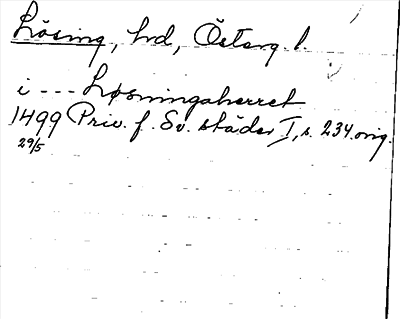 Lösing, hd, Österg. l.
i --- Løsningaherret
1499 Priv. f. Sv. städer I, s. 234. orig.
29/5